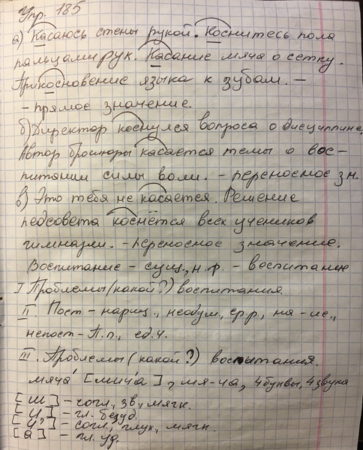 Упр. 185
а) Касаюсь стены рукой. Коснитесь пола
пальцами рук. Касание мяча о сетку.
Прикосновение языка к зубам. –
- прямое значение.
б) Директор коснулся вопроса о дисциплине
Автор брошюры касается темы о вос-
питании силы воли. - переносное зн.
в) Это тебя не касается. Решение
педсовета коснётся всех учеников
гимназии. - переносное значение.
Воспитание - сущ., н.ф. - воспитание
I Проблемы (какой?) воспитания
II Пост - нариц., неодуш., ср.р., на -ие,
непост - П.п., ед.ч.
III. Проблемы (какой?) воспитания.
мяча [мич'а], мя-ча, 4 буквы, 4 звука
[м] - согл., зв., мягк.
[и] - гл. безуд.
[ч'] - согл., глух., мягк.
[а] - гл. уд.